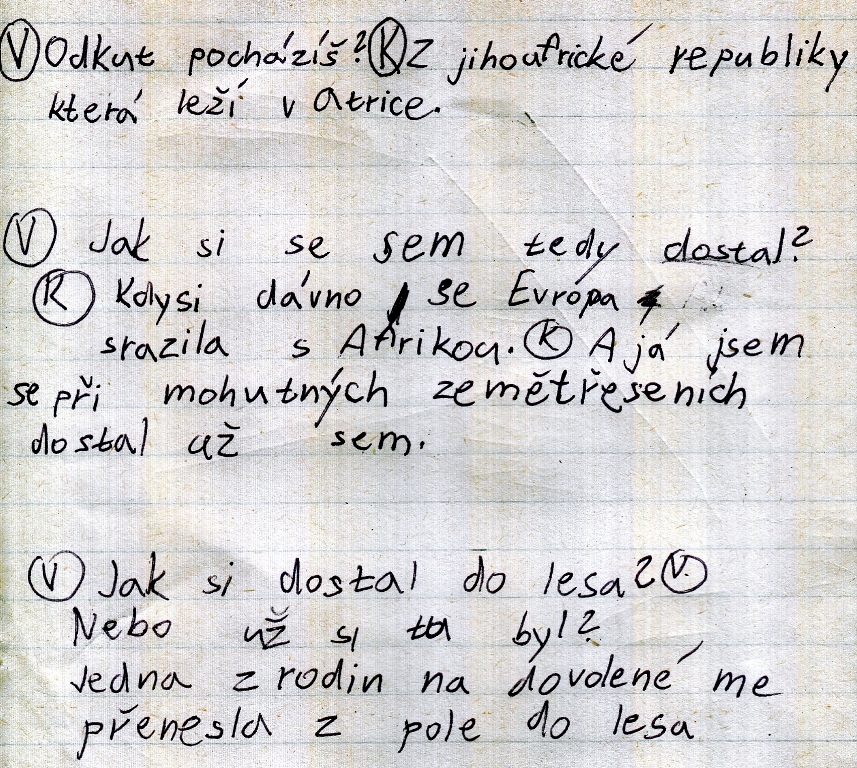 Ⓥ Odkut pocházíš? Ⓚ Z jihoafrické republiky
která leží v Africe.
Ⓥ Jak si se sem tedy dostal?
Ⓚ Kdysi dávno se Evrópa
srazila s Afrikou. Ⓚ A já jsem
se při mohutných zemětřeseních
dostal až sem.
Ⓥ Jak si dostal do lesa? Ⓥ
Nebo už si tu byl?
Jedna z rodin na dovolené me
přenesla z pole do lesa